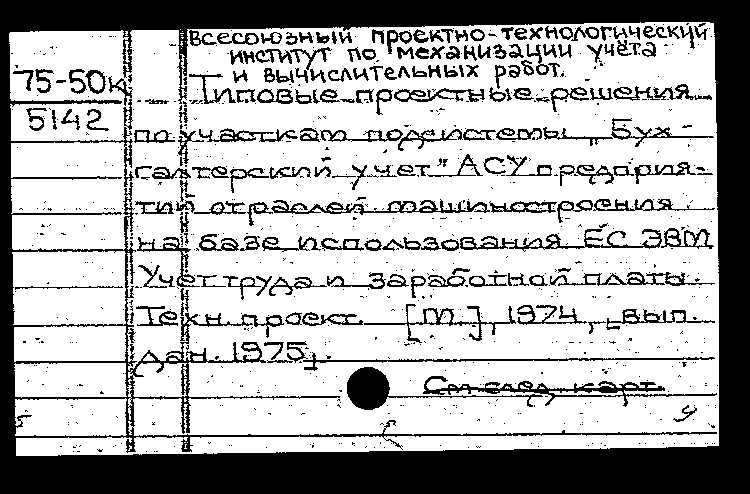 Всесоюзный проектно-технологический
институт по механизации учёта
и вычислительных работ.
75-50к
5142
Типовые проектные решения
по участкам подсистемы „Бух-
галтерский учет" АСУ предприя-
тий отраслей машиностроения
на базе использования ЕС ЭВМ
Учет труда и заработной платы.
Техн. проект. [М.], 1974, [вып.
дан. 1975].
См след. карт.